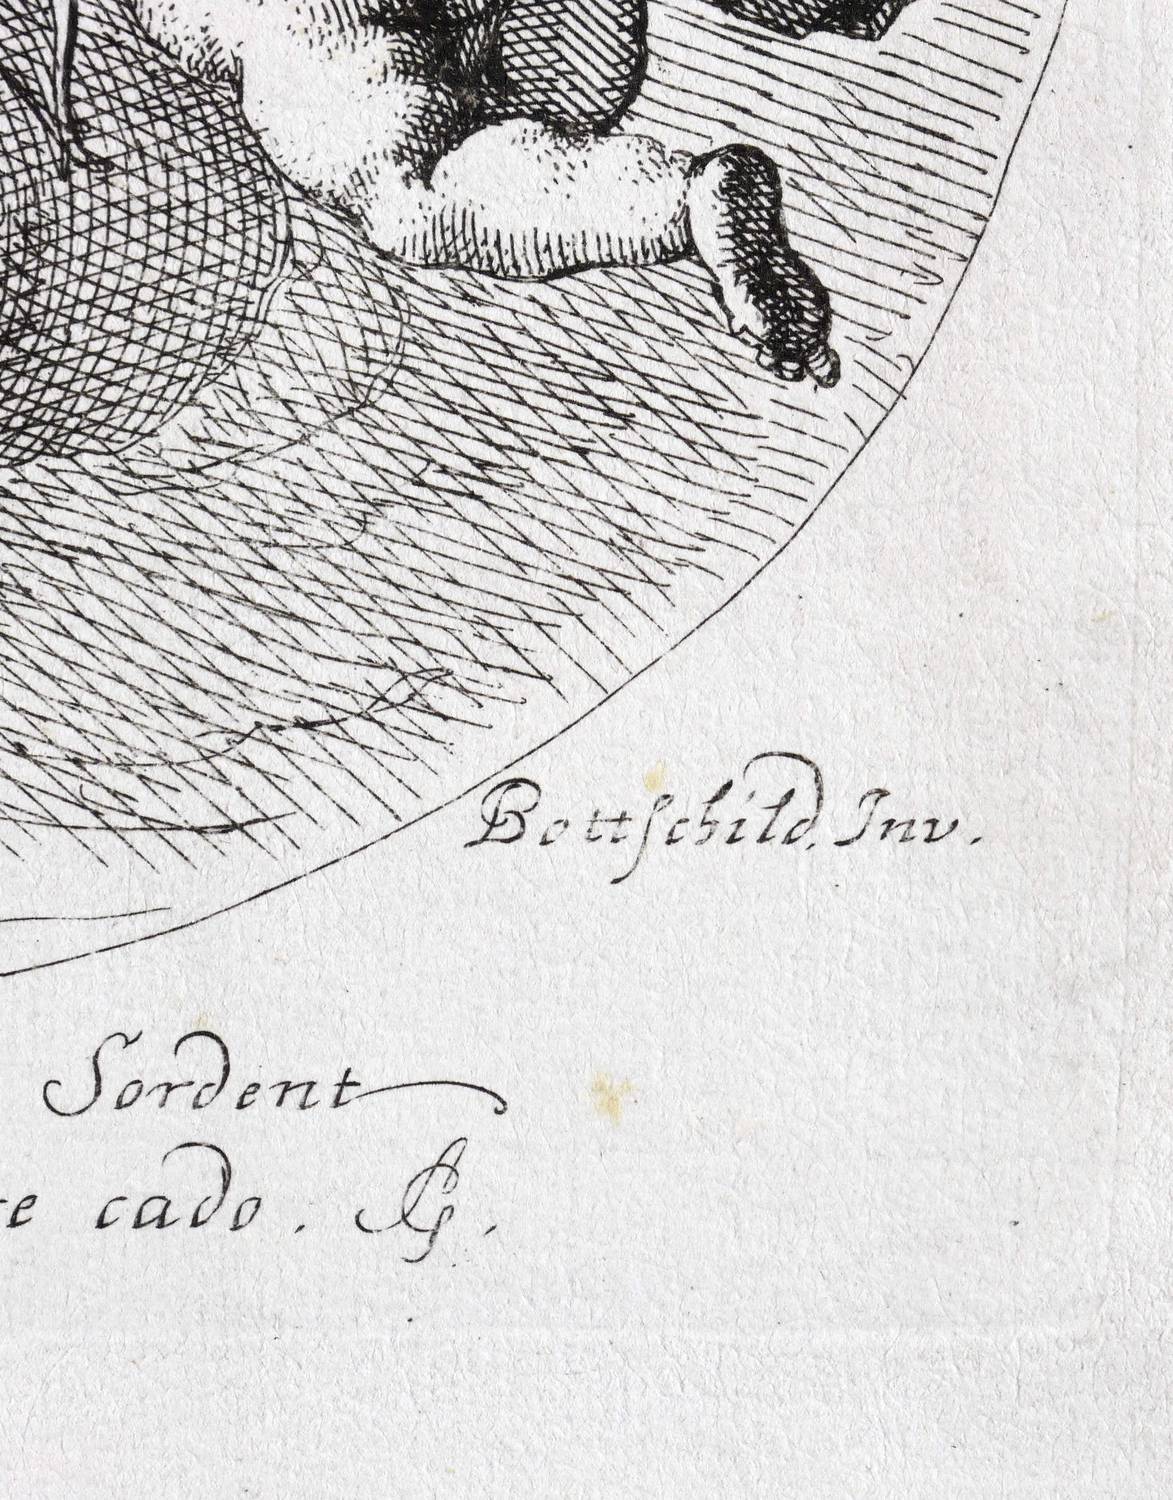 Bottſchild. Inv.
Sordent
cado. AG.